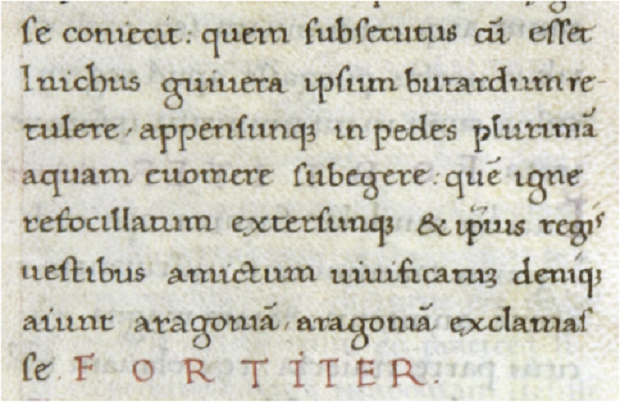 se coniecit: quem subsecutus cū esset
Inichus guiuera ipsum butardum re-
tulere, appensunqꝫ in pedes plurimā
aquam euomere subegere: quē igne
refocillatum extersunqꝫ & ip̄ius regis
uestibus amictum uiuificatuꝫ deniqꝫ
aiunt aragoniā, aragoniā exclamas
se. FORTITER.